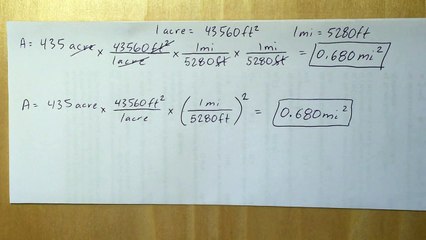 1 acre = 43560 ft² 1 mi = 5280 ft
A = 435 acre × 43560 ft²/1 acre × 1 mi/5280 ft × 1 mi/5280 ft = 0.680 mi²
A = 435 acre × 43560 ft²/1 acre × (1 mi/5280 ft)² = 0.680 mi²